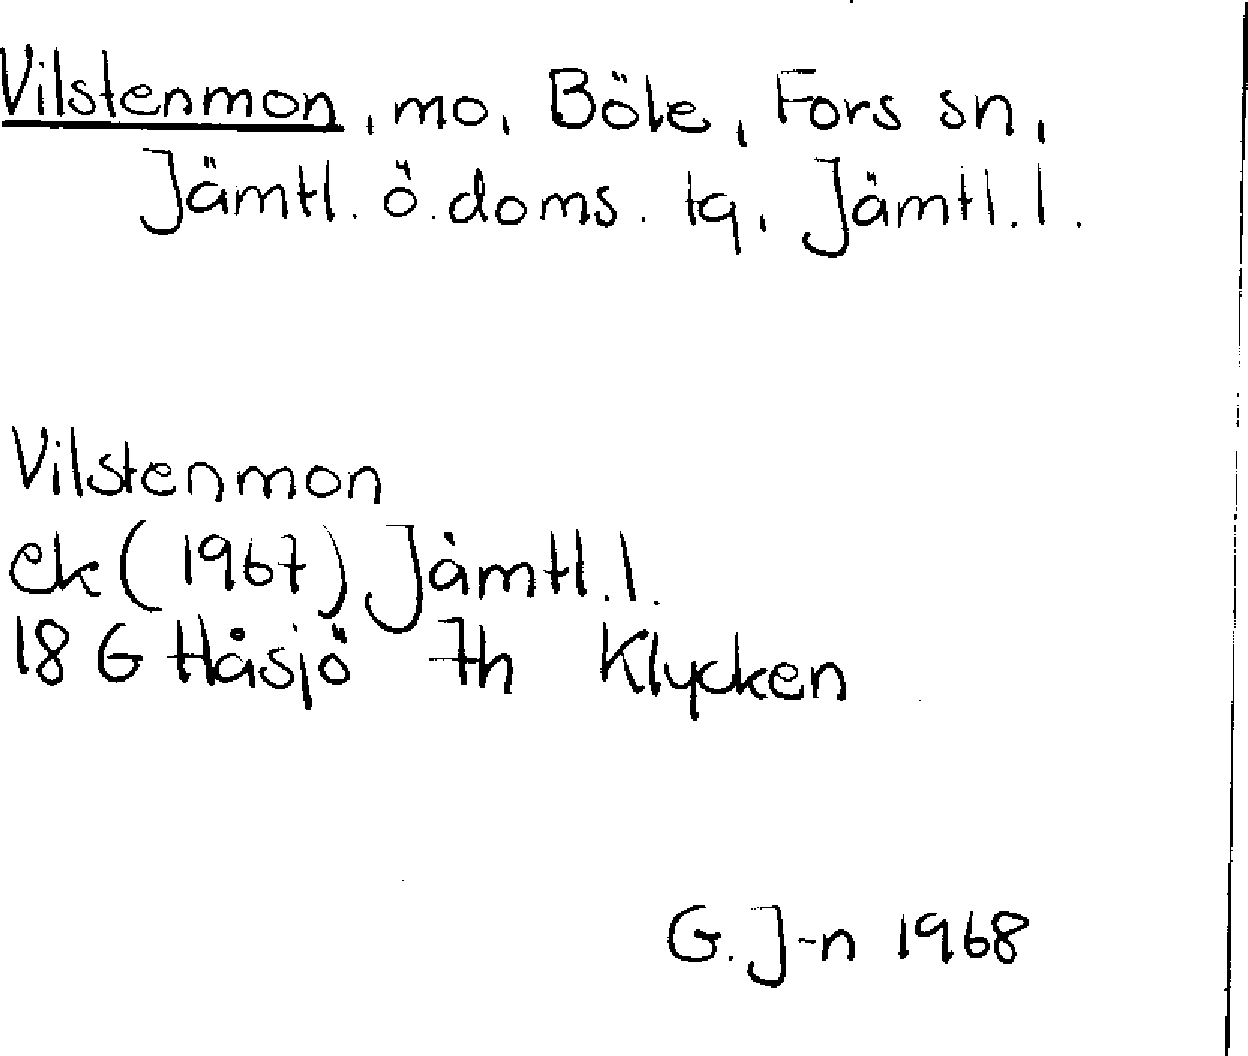 Vilstenmon, mo, Böle, Fors sn,
Jämtl. ö. doms. tg, Jämtl. l.
Vilstenmon
ek (1967) Jämtl. l.
18 G Håsjö 7h Klycken
G. J-n 1968